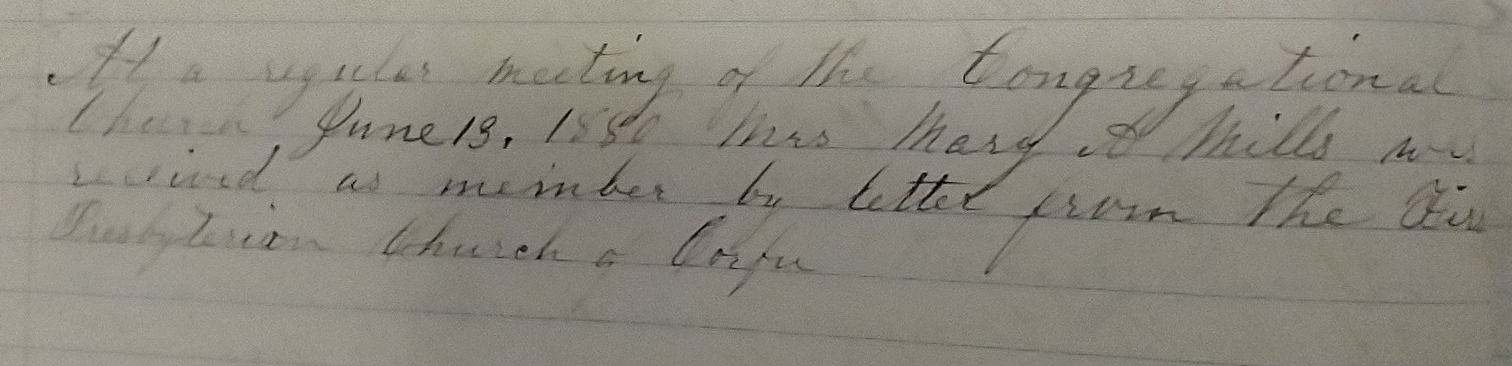 At a regular meeting of the Congregational
Church, June 13, 1880 Mrs Mary A Mills was
received as member by letter from the Firs
Presbyterian Church o Corfu